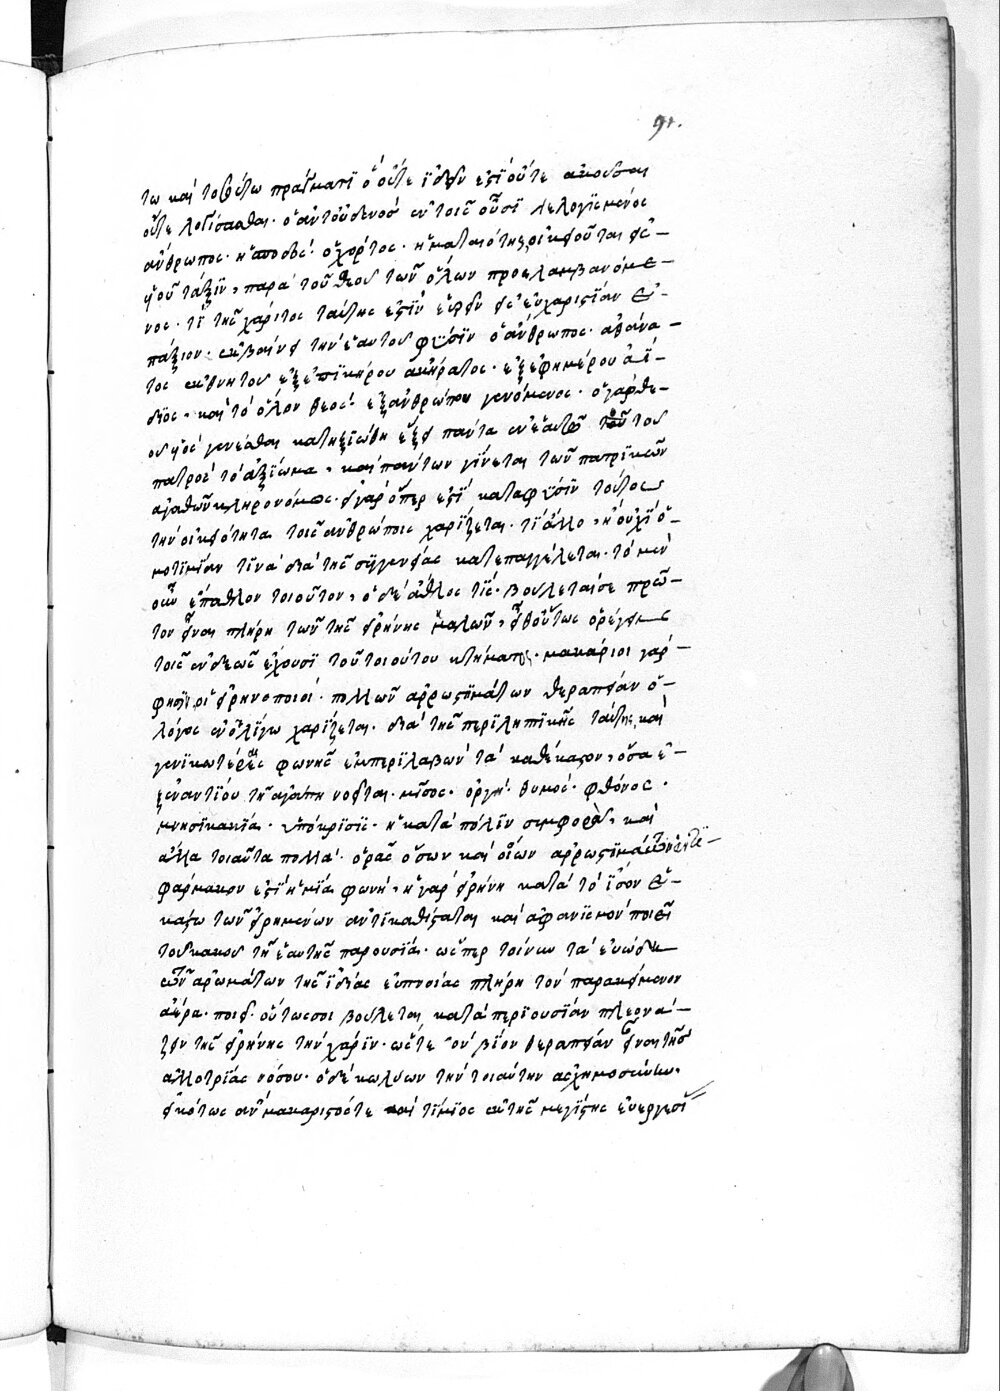 91.
τω και τοιούτω πράγματι ὃ οὔτε ἰδεῖν ἐστὶ οὔτε ἀκοῦσαι
οὔτε λογίσασθαι· ὁ ἀντουδενὸσ ἐν τοῖς οὖσι λελογισμένος
ἄνθρωπος· ἡ σποδὸς· ὁ χόρτος· ἡ ματαιότης οἰκειοῦται εἰς
υἱοῦ τάξιν, παρὰ τοῦ θεοῦ τῶν ὅλων προσλαμβανόμε-
νος· τί τῆς χάριτος ταύτης ἐστὶν εὑρεῖν εἰς εὐχαριστίαν ἐ-
πάξιον· ἐκβαίνει τὴν ἑαυτοῦ φύσιν ὁ ἄνθρωπος· ἀθάνα-
τος ἐκ θνητοῦ ἐξ ἐπικήρου ἀκήρατος· ἐξ ἐφημέρου ἀΐ-
διος· καὶ τὸ ὅλον θεὸς ἐξ ἀνθρώπου γενόμενος· ὁ γὰρ θε-
οῦ υἱὸς γενέσθαι καταξιωθεὶς ἕξει πάντα ἐν ἑαυτῷ τοῦ
πατρὸς τὸ ἀξίωμα, καὶ πάντων γίνεται τῶν πατρικῶν
ἀγαθῶν κληρονόμος· εἰ γὰρ ὅπερ ἐστὶ κατὰ φύσιν τούτοις
τὴν οἰκειότητα τοῖς ἀνθρώποις χαρίζεται· τί ἄλλο, ἢ οὐχὶ ὁ-
μοτιμίαν τινὰ διὰ τῆς συγγενείας κατεπαγγέλεται· τὸ μεν
οὖν ἔπαθλον τοιοῦτον, ὁ δὲ ἆθλος τίς· βούλεταί σε πρῶ-
τον εἶναι πλήρη τῶν τῆς εἰρήνης καλῶν, εἶθ οὕτως ὀρέγειν
τοῖς ἐνδεῶς ἔχουσι τοῦ τοιούτου κτήματος· μακάριοι γάρ
φησιν οἱ εἰρηνοποιοί· πολλῶν ἀρρωστημάτων θεραπείαν ὁ
λόγος ἐν ὀλίγω χαρίζεται· διὰ τῆς περιληπτικῆς ταύτης καὶ
γενικωτέρας φωνῆς ἐμπεριλαβὼν τὰ καθέκαστον, ὅσα ἐ-
ξεναντίου τῇ ἀγάπῃ νοεῖται· μῖσος· ὀργὴ· θυμὸς· φθόνος·
μνησικακία· ὑπόκρισις· ἡ κατὰ πόλιν συμφορὰ, καὶ
ἄλλα τοιαῦτα πολλὰ· ὁρᾷς ὅσων καὶ οἵων ἀρρωστημάτων
φάρμακον ἐστὶ ἡ μία φωνὴ, ἡ γὰρ εἰρήνη κατὰ τὸ ἴσον ἑ-
κάστω τῶν εἰρημένων ἀντικαθίσταται καὶ ἀφανισμὸν ποιεῖ
τοῦ κακοῦ τῇ ἑαυτῆς παρουσίᾳ· ὥσπερ τοίνυν τὰ εὐώδη
τῶν ἀρωμάτων τῆς ἰδίας εὐπνοίας πλήρη τὸν παρακείμενον
ἀέρα· ποιεῖ· οὕτως σοι βούλεται κατὰ περιουσίαν πλεονά-
ζειν τῆς εἰρήνης τὴν χάριν· ὥστε τον βίον θεραπείαν εἶναι τῆς
ἀλλοτρίας νόσου· ὁ δὲ κωλύων τὴν τοιαύτην ἀσχημοσύνην·
εἰκότως ἂν μακαριστός τε καὶ τίμιος ἐκ τῆς μεγίστης εὐεργεσί